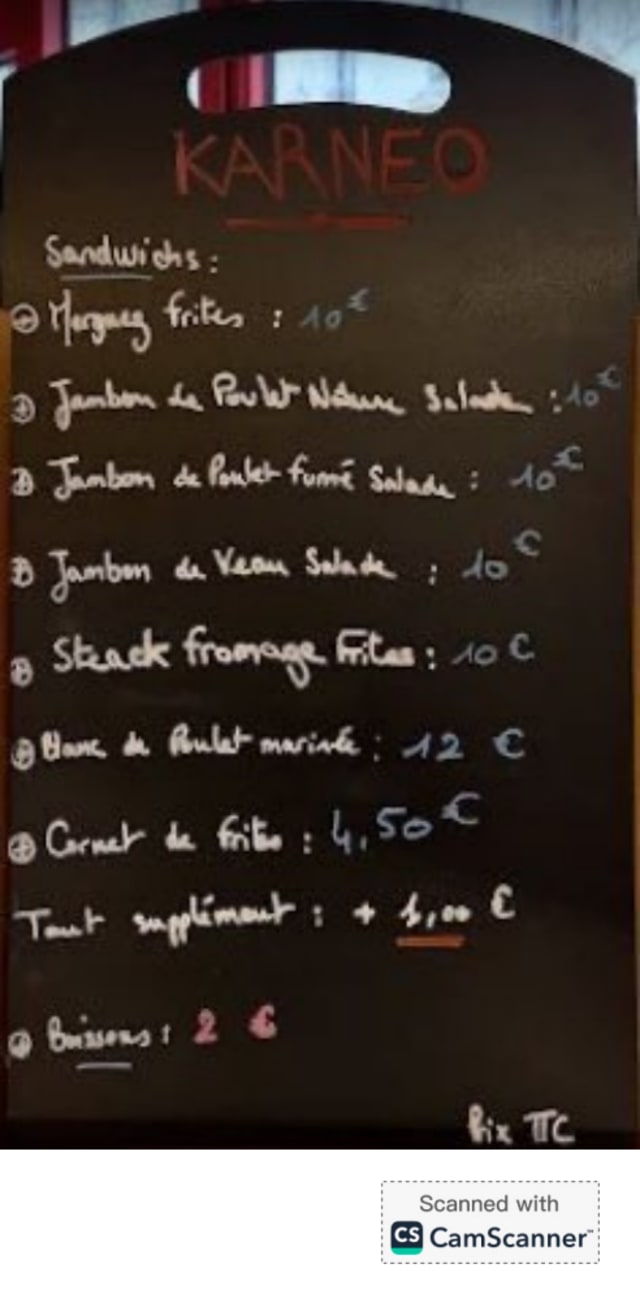 KARNEO
Sandwichs :
Merguez frites : 10€
Jambon de Poulet Salade : 10€
Jambon de Poulet fumé Salade : 10€
Jambon de Veau Salade : 10€
Steack fromage Frites : 10 €
Blanc de Poulet mariné : 12 €
Cornet de frites : 4,50 €
Tout supplément : + 1,00 €
Boissons : 2 €
Prix TTC
Scanned with
CS CamScanner™